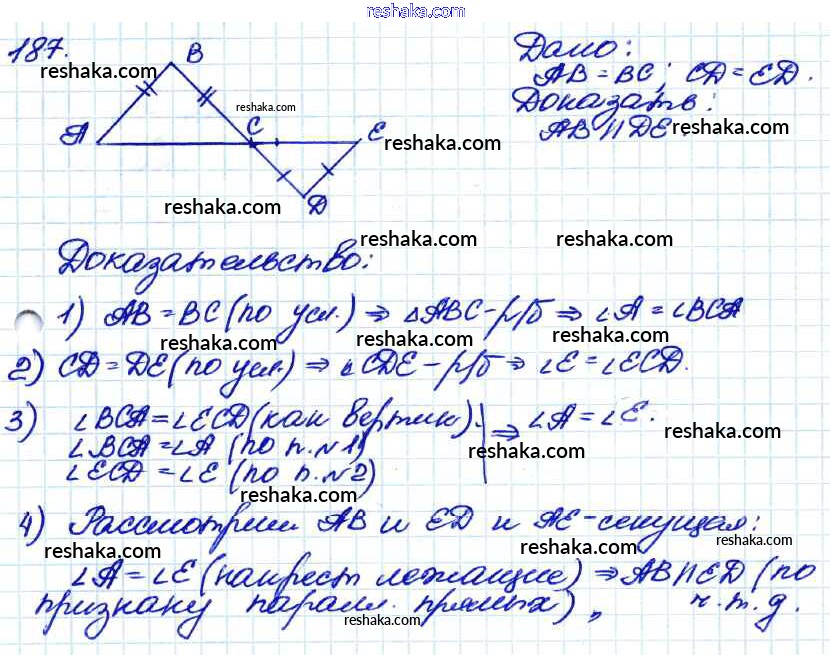 reshaka.com
187.
B
reshaka.com
reshaka.com
A
C
E
D
reshaka.com
Дано:
AB = BC; CD = ED.
Доказать:
AB || DE
reshaka.com
reshaka.com
Доказательство:
reshaka.com
reshaka.com
1) AB = BC (по усл.) ⇒ △ABC - р/б ⇒ ∠A = ∠BCA
reshaka.com
reshaka.com
2) CD = DE (по усл.) ⇒ △CDE - р/б ⇒ ∠E = ∠ECD.
3) ∠BCA = ∠ECD (как вертик.)
∠BCA = ∠A (по п. №1)
∠ECD = ∠E (по п. №2)
⇒ ∠A = ∠E.
reshaka.com
reshaka.com
4) Рассмотрим AB и ED и AE - секущая:
reshaka.com
reshaka.com
reshaka.com
∠A = ∠E (накрест лежащие) ⇒ AB || ED (по
признаку паралл. прямых), ч.т.д.
reshaka.com
reshaka.com